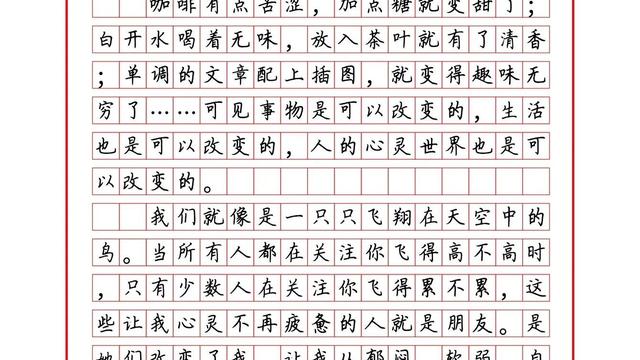 咖啡有点苦涩，加点糖就变甜了；
白开水喝着无味，放入茶叶就有了清香
；单调的文章配上插图，就变得趣味无
穷了……可见事物是可以改变的，生活
也是可以改变的，人的心灵世界也是可
以改变的。
我们就像是一只只飞翔在天空中的
鸟。当所有人都在关注你飞得高不高时
，只有少数人在关注你飞得累不累，这
些让我心灵不再疲惫的人就是朋友。是
她们改变了我，让我从郁闷、软弱、自